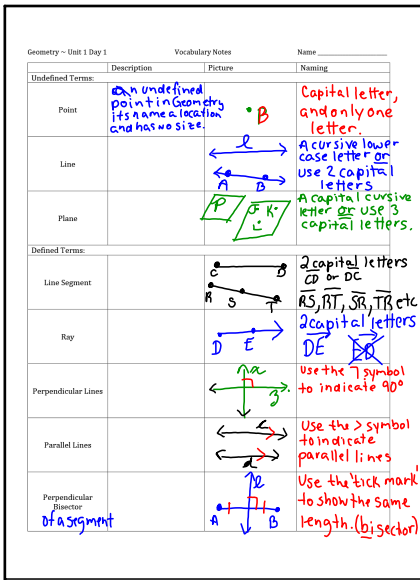 Geometry ~ Unit 1 Day 1 Vocabulary Notes Name
Description Picture Naming
Undefined Terms:
Point
An undefined
point in Geometry
its name a location
and has no size.
B
Capital letter,
and only one
letter.
Line
l
A B
A cursive lower
case letter or
use 2 capital
letters
Plane
P
J K
L
A capital cursive
letter or use 3
capital letters.
Defined Terms:
Line Segment
C D
R S T
2 capital letters
CD or DC
RS, RT, SR, TR etc
Ray
D E
2 capital letters
DE ED
Perpendicular Lines
a
z
Use the ┐ symbol
to indicate 90°
Parallel Lines
c
d
Use the > symbol
to indicate
parallel lines
Perpendicular
Bisector
of a segment
l
A B
Use the 'tick mark'
to show the same
length. (bisector)